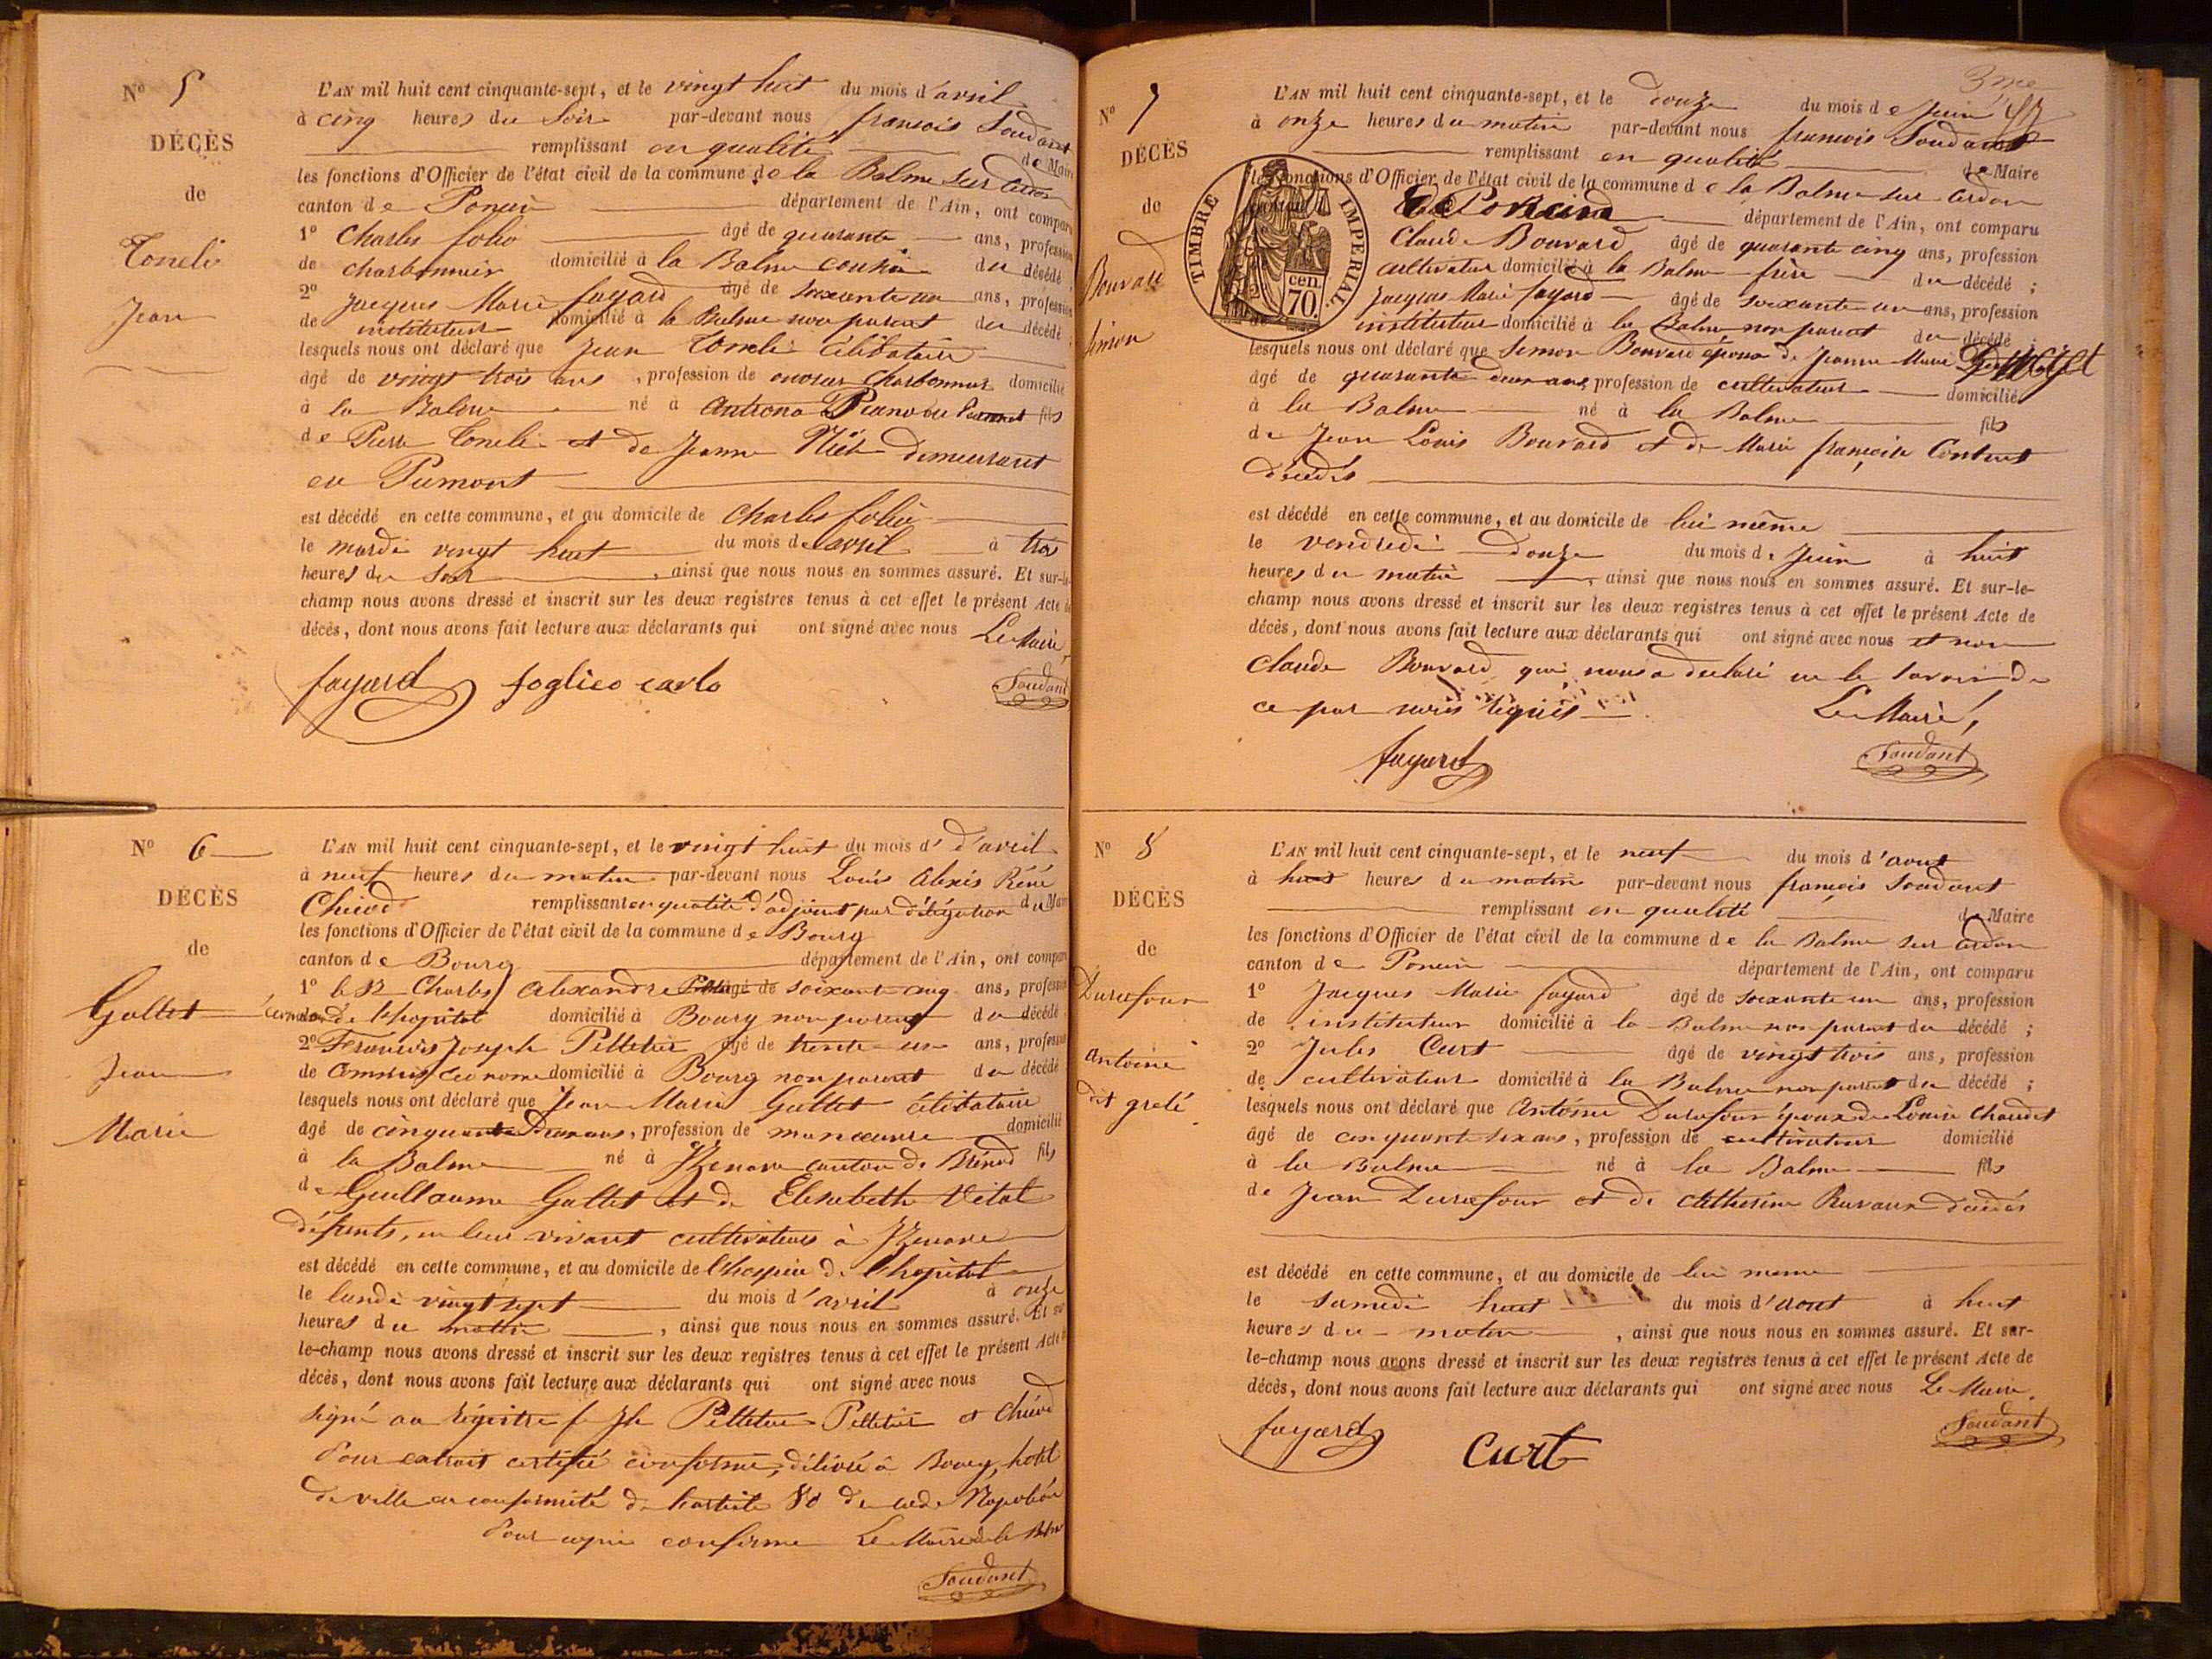 N° 5
DÉCÈS
de
Toneli
Jean
L'AN mil huit cent cinquante-sept, et le vingt huit du mois d'avril
à cinq heures du soir par-devant nous françois Soudant
remplissant en qualité de Maire
les fonctions d'Officier de l'état civil de la commune de la Balme sur Cerdon
canton de Poncin département de l'Ain, ont comparu
1° Charles folio âgé de quarante ans, profession
de charbonnier domicilié à la Balme cousin du décédé
2° Jacques Marie fayard âgé de soixante un ans, profession
de instituteur domicilié à la Balme non parent du décédé
lesquels nous ont déclaré que Jean Toneli célibataire
âgé de vingt trois ans, profession de charbonnier domicilié
à la Balme né à Antrona Piana en fils
de Pierre Toneli et de Jeanne demeurant
en Piemont
est décédé en cette commune, et au domicile de Charles folio
le mardi vingt huit du mois d'avril à trois
heures du soir, ainsi que nous nous en sommes assuré. Et sur-le-
champ nous avons dressé et inscrit sur les deux registres tenus à cet effet le présent Acte de
décès, dont nous avons fait lecture aux déclarants qui ont signé avec nous Le Maire,
fayard foglico carlo Soudant
N° 6
DÉCÈS
de
Gallet
Jean
Marie
L'AN mil huit cent cinquante-sept, et le vingt huit du mois d'd'avril
à neuf heures du matin par-devant nous Louis Alexis Réné
Chicod remplissant en qualité d'adjoint par délégation du Maire
les fonctions d'Officier de l'état civil de la commune de Bourg
canton de Bourg département de l'Ain, ont comparu
1° le Sr Charles Alexandre âgé de soixante cinq ans, profession
économe de l'hopital domicilié à Bourg non parent du décédé
2° François Joseph Pelletier âgé de trente un ans, profession
de commis économe domicilié à Bourg non parent du décédé
lesquels nous ont déclaré que Jean Marie Gallet célibataire
âgé de cinquante ans, profession de manœuvre domicilié
à la Balme né à Izenave canton de Brénod fils
de Guillaume Gallet et de Elisabeth Vitat
défunts, en leur vivant cultivateurs à Izenave
est décédé en cette commune, et au domicile de l'hospice de l'hopital
le lundi vingt sept du mois d'avril à onze
heures du matin, ainsi que nous nous en sommes assuré. Et sur
le-champ nous avons dressé et inscrit sur les deux registres tenus à cet effet le présent Acte de
décès, dont nous avons fait lecture aux déclarants qui ont signé avec nous
signé au régistre f Jh Pelletier Pelletier et Chicod
Pour extrait certifié conforme, délivré à Bourg, hotel
de ville en conformité de l'article 80 du code Napoléon
Pour copie conforme Le Maire de la Balme
Soudant
3me
N° 7
DÉCÈS
de
Bouvard
Simon
TIMBRE IMPÉRIAL.
70. cen
L'AN mil huit cent cinquante-sept, et le douze du mois de Juin
à onze heures du matin par-devant nous françois Soudant
remplissant en qualité de Maire
les fonctions d'Officier de l'état civil de la commune de la Balme sur Cerdon
de Poncin département de l'Ain, ont comparu
Claude Bouvard âgé de quarante cinq ans, profession
cultivateur domicilié à la Balme frère du décédé ;
Jacques Marie fayard âgé de soixante un ans, profession
instituteur domicilié à la Balme non parent du décédé ;
lesquels nous ont déclaré que Simon Bouvard époux de Jeanne Marie
âgé de quarante deux ans, profession de cultivateur domicilié
à la Balme né à la Balme fils
de Jean Louis Bouvard et de Marie françoise
décédés
est décédé en cette commune, et au domicile de lui même
le vendredi douze du mois de Juin à huit
heures du matin, ainsi que nous nous en sommes assuré. Et sur-le-
champ nous avons dressé et inscrit sur les deux registres tenus à cet effet le présent Acte de
décès, dont nous avons fait lecture aux déclarants qui ont signé avec nous et non
Claude Bouvard qui nous a déclaré ne le savoir de
ce par nous réquis Le Maire,
fayard Soudant
N° 8
DÉCÈS
de
Durafour
Antoine
dit grelé
L'AN mil huit cent cinquante-sept, et le neuf du mois d'aout
à huit heures du matin par-devant nous françois Soudant
remplissant en qualité de Maire
les fonctions d'Officier de l'état civil de la commune de la Balme sur Cerdon
canton de Poncin département de l'Ain, ont comparu
1° Jacques Marie fayard âgé de soixante un ans, profession
de instituteur domicilié à la Balme non parent du décédé ;
2° Jules Curt âgé de vingt trois ans, profession
de cultivateur domicilié à la Balme non parent du décédé ;
lesquels nous ont déclaré que Antoine Durafour époux de Louise Chaudet
âgé de cinquante six ans, profession de cultivateur domicilié
à la Balme né à la Balme fils
de Jean Durafour et de Cathérine Ravaux décédés
est décédé en cette commune, et au domicile de lui meme
le samedi huit du mois d'aout à huit
heures du matin, ainsi que nous nous en sommes assuré. Et sur-
le-champ nous avons dressé et inscrit sur les deux registres tenus à cet effet le présent Acte de
décès, dont nous avons fait lecture aux déclarants qui ont signé avec nous Le Maire.
fayard Curt Soudant